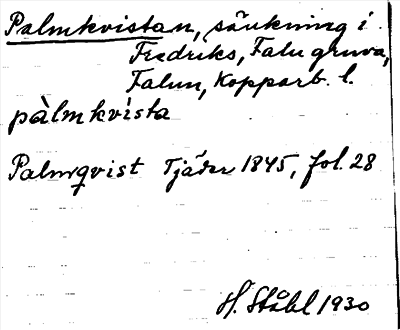 Palmkvistan, sänkning i
Fredriks, Falu gruva,
Falun, Kopparb. l.
pàlmkvista
Palmqvist Tjäder 1845, fol. 28
H. Ståhl 1930